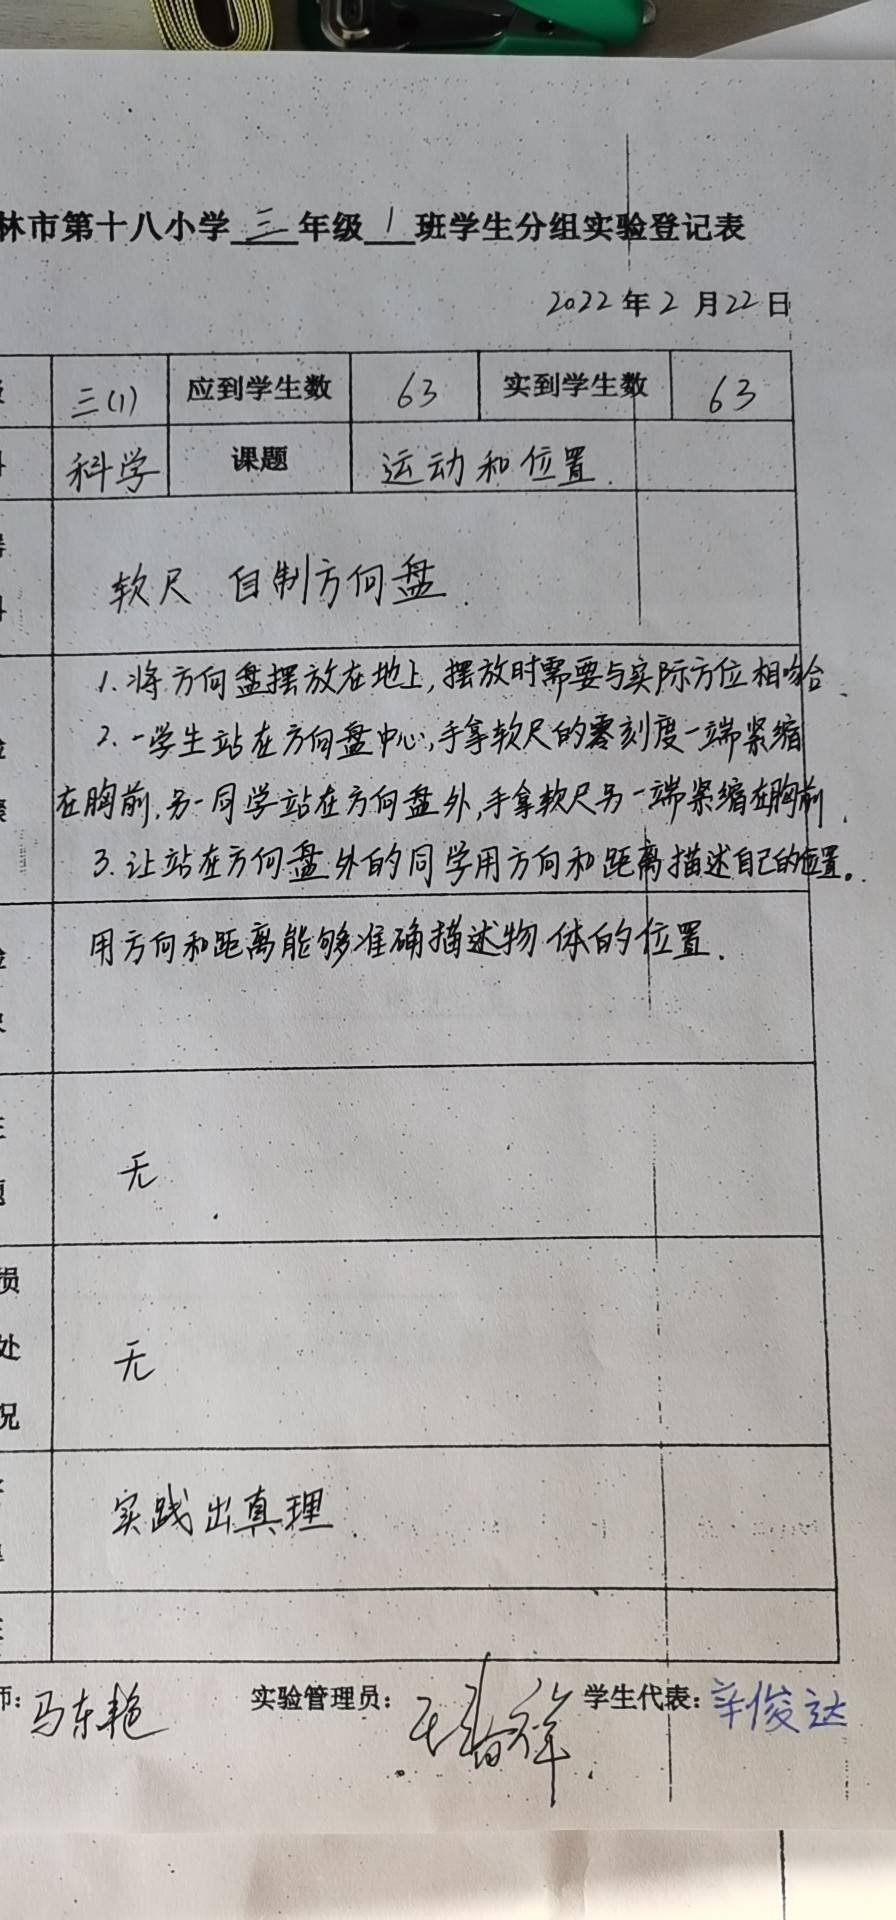 林市第十八小学三年级1班学生分组实验登记表
2022年2月22日
三(1) 应到学生数 63 实到学生数 63
科学 课题 运动和位置.
软尺 自制方向盘.
1.将方向盘摆放在地上,摆放时需要与实际方位相吻合.
2.一学生站在方向盘中心,手拿软尺的零刻度一端紧缩
在胸前.另一同学站在方向盘外,手拿软尺另一端紧缩在胸前.
3.让站在方向盘外的同学用方向和距离描述自己的位置。
用方向和距离能够准确描述物体的位置.
无
损
处 无
况
实践出真理
师:马东艳 实验管理员: 学生代表:辛俊达